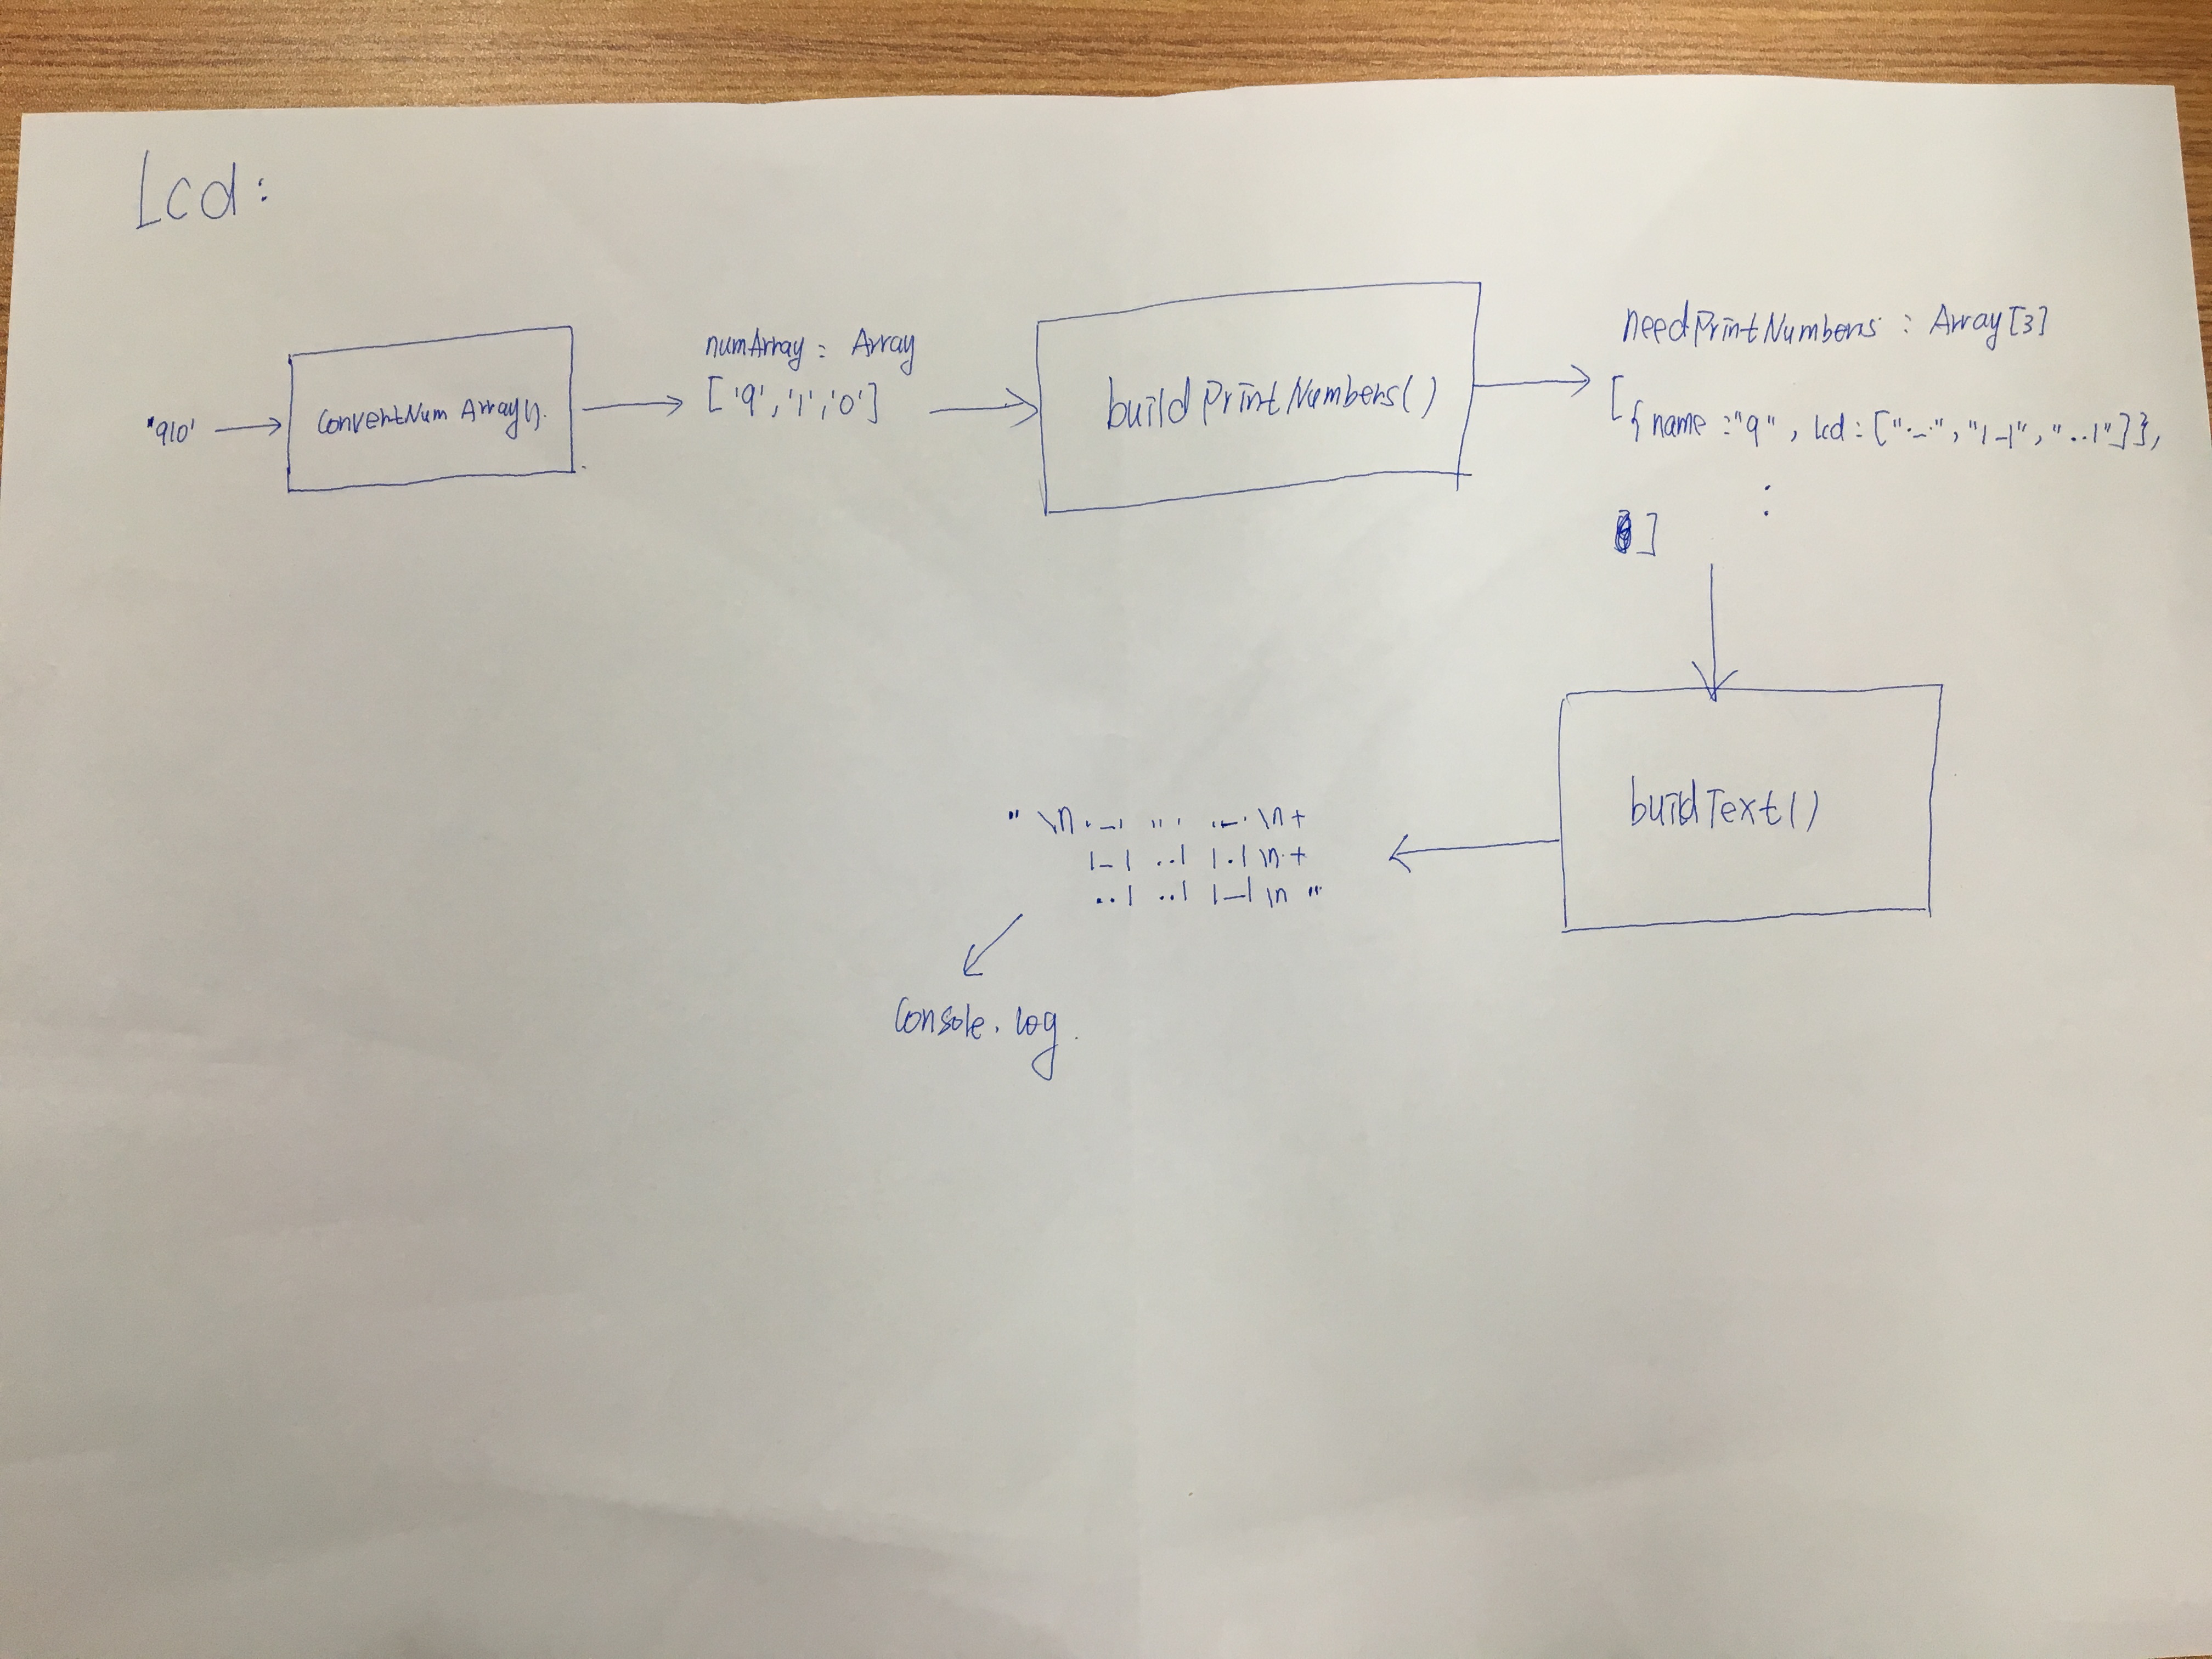 Lcd:
'910'
ConvertNumArray().
numArray: Array
['9','1','0']
buildPrintNumbers()
needPrintNumbers: Array[{}]
[{name:"9", lcd:["._.","|_|","..|"]},
:
]
buildText()
"\n._. ... ._.\n+
|_| ..| |.|\n+
..| ..| |_|\n"
Console.log.